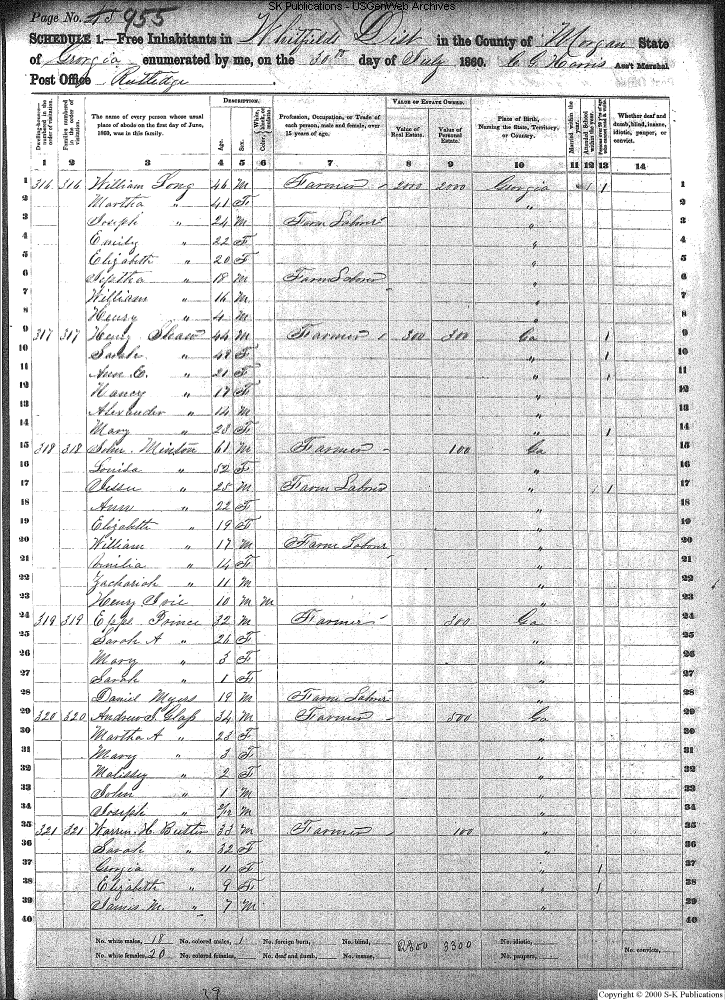 SK Publications - USGenWeb Archives
Page No. 45 955
SCHEDULE 1.—Free Inhabitants in Whitfields Dist in the County of Morgan State
of Georgia enumerated by me, on the 30th day of July 1860. C G Harris Ass't Marshal
Post Office Rutledge
Dwelling-houses—numbered in the order of visitation.
Families numbered in the order of visitation.
The name of every person whose usual place of abode on the first day of June, 1860, was in this family.
DESCRIPTION.
Age.
Sex.
Color, White, black, or mulatto.
Profession, Occupation, or Trade of each person, male and female, over 15 years of age.
VALUE OF ESTATE OWNED.
Value of Real Estate.
Value of Personal Estate.
Place of Birth, Naming the State, Territory, or Country.
Married within the year.
Attended School within the year.
Persons over 20 y'rs of age who cannot read & write.
Whether deaf and dumb, blind, insane, idiotic, pauper, or convict.
1 2 3 4 5 6 7 8 9 10 11 12 13 14
1 316 316 William Long 46 M Farmer 2000 2000 Georgia 1 1 1
2 Martha " 41 F " 2
3 Joseph " 24 M Farm Labour " 3
4 Emily " 22 F " 4
5 Elizabeth " 20 F " 5
6 Jeptha " 18 M Farm Labour " 6
7 William " 16 M " 7
8 Henry " 4 M " 8
9 317 317 Henry Shaw 44 M Farmer 300 300 Ga 1 9
10 Sarah " 48 F " 1 10
11 Ann E. " 21 F " 1 11
12 Nancy " 17 F " 12
13 Alexander " 14 M " 13
14 Mary " 23 F " 1 14
15 318 318 John Minton 61 M Farmer 100 Ga 15
16 " 52 F " 16
17 Jesse " 25 M Farm Labour " 1 1 17
18 Ann " 22 F " 18
19 Elizabeth " 19 F " 19
20 William " 17 M Farm Labour " 20
21 " 14 F " 21
22 Zachariah " 11 M " 22
23 Henry 10 M M " 23
24 319 319 Epps Prince 32 M Farmer 300 Ga 24
25 Sarah A " 26 F " 25
26 Mary " 3 F " 26
27 Sarah " 1 F " 27
28 Daniel Myers 19 M Farm Labour " 28
29 320 320 Andrew S. Glass 34 M Farmer 500 Ga 29
30 Martha A " 23 F " 30
31 Mary " 3 F " 31
32 Malissey " 2 F " 32
33 John " 1 M " 33
34 Joseph " 2/12 M " 34
35 321 321 Warren H. Butler 33 M Farmer 100 " 35
36 Sarah " 32 F " 36
37 Georgia " 11 F " 1 37
38 Elizabeth " 9 F " 1 38
39 James M. " 7 M " 39
40 40
No. white males, 18 No. colored males, 1 No. foreign born, No. blind, 2300 3300 No. idiotic,
No. white females, 20 No. colored females, No. deaf and dumb, No. insane, No. paupers, No. convicts,
29
Copyright © 2000 S-K Publications